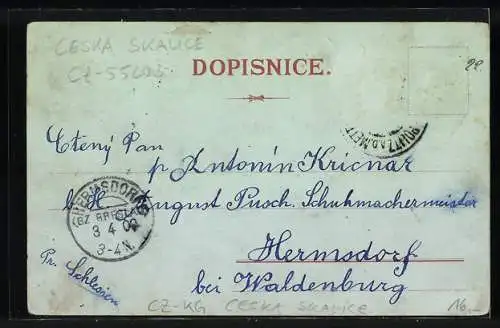 CESKA SKALICE
CZ-55203
22
DOPISNICE.
Ctený Pan
p Antonín Kricnar
b. H. August Pusch. Schuhmachermeister
HERMSDORF
(BZ. BRESLAU)
3 4 06
3-4N.
Hermsdorf
Pr. Schlesien
bei Waldenburg
CZ-KG CESKA SKALICE
16,-